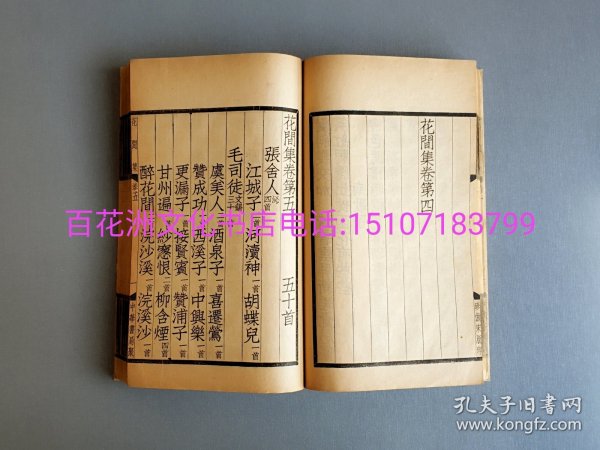 花間集卷第四
花間集卷第五 五十首
張舍人泌四首
江城子 河瀆神 胡蝶兒一首
毛司徒文錫三十
虞美人 酒泉子 喜遷鶯一首
贊成功 西溪子 中興樂一首
更漏子 接賢賓一首 贊浦子一首
甘州遍 紗窓恨 柳含煙四首
醉花間 浣沙溪一首 浣溪沙一首
花間集 卷五
百花洲文化书店电话:15107183799
孔夫子旧书网
www.kongfz.com